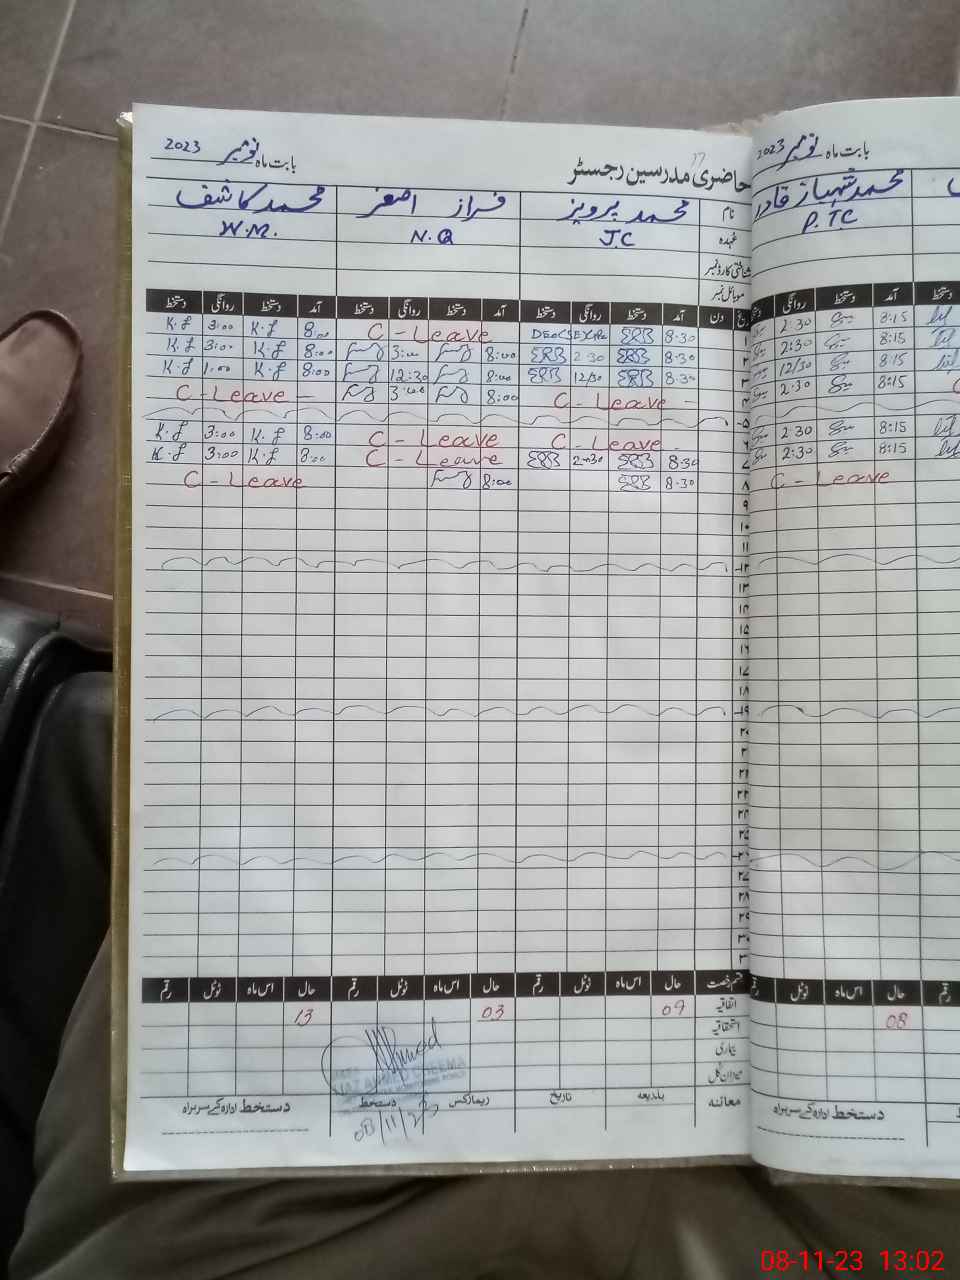 حاضری مدرسین رجسٹر
بابت ماہ نومبر 2023
نام محمد پرویز فراز اصغر محمد کاشف
عہدہ J.C N.Q W.M.
شناختی کارڈ نمبر
موبائل نمبر
تاریخ دن آمد دستخط روانگی دستخط آمد دستخط روانگی دستخط آمد دستخط روانگی دستخط
۱ 8-30 C - Leave 8:00 K.f 3:00 K.f
۲ 8-30 2-30 8:00 3:00 8:00 K.f 3:00 K.f
۳ 8-30 12/30 8:00 12:30 8:00 K.f 1:00 K.f
۴ C - Leave - 8:00 3:00 C - Leave -
۵
۶ C - Leave - C - Leave 8:00 K.f 3:00 K.f
۷ 8-30 2-30 C - Leave 8:00 K.f 3:00 K.f
۸ 8-30 8:00 C - Leave
۹
۱۰
۱۱
۱۲
۱۳
۱۴
۱۵
۱۶
۱۷
۱۸
۱۹
۲۰
۲۱
۲۲
۲۳
۲۴
۲۵
۲۶
۲۷
۲۸
۲۹
۳۰
۳۱
قسم رخصت حال اس ماہ ٹوٹل رقم حال اس ماہ ٹوٹل رقم حال اس ماہ ٹوٹل رقم
اتفاقیہ 09 03 13
استحقاقیہ
بیماری
میزان کل
معائنہ بلدیعہ تاریخ ریمارکس دستخط دستخط ادارہ کے سربراہ
NIAZ AHMED CHEEMA
08/11/23
بابت ماہ نومبر 2023
محمد شہباز قادر
P.TC
آمد دستخط روانگی
8:15 2:30
8:15 2:30
8:15 12/30
8:15 2:30
8:15 2:30
8:15 2:30
C - Leave
حال اس ماہ ٹوٹل رقم
08
دستخط ادارہ کے سربراہ
08-11-23 13:02